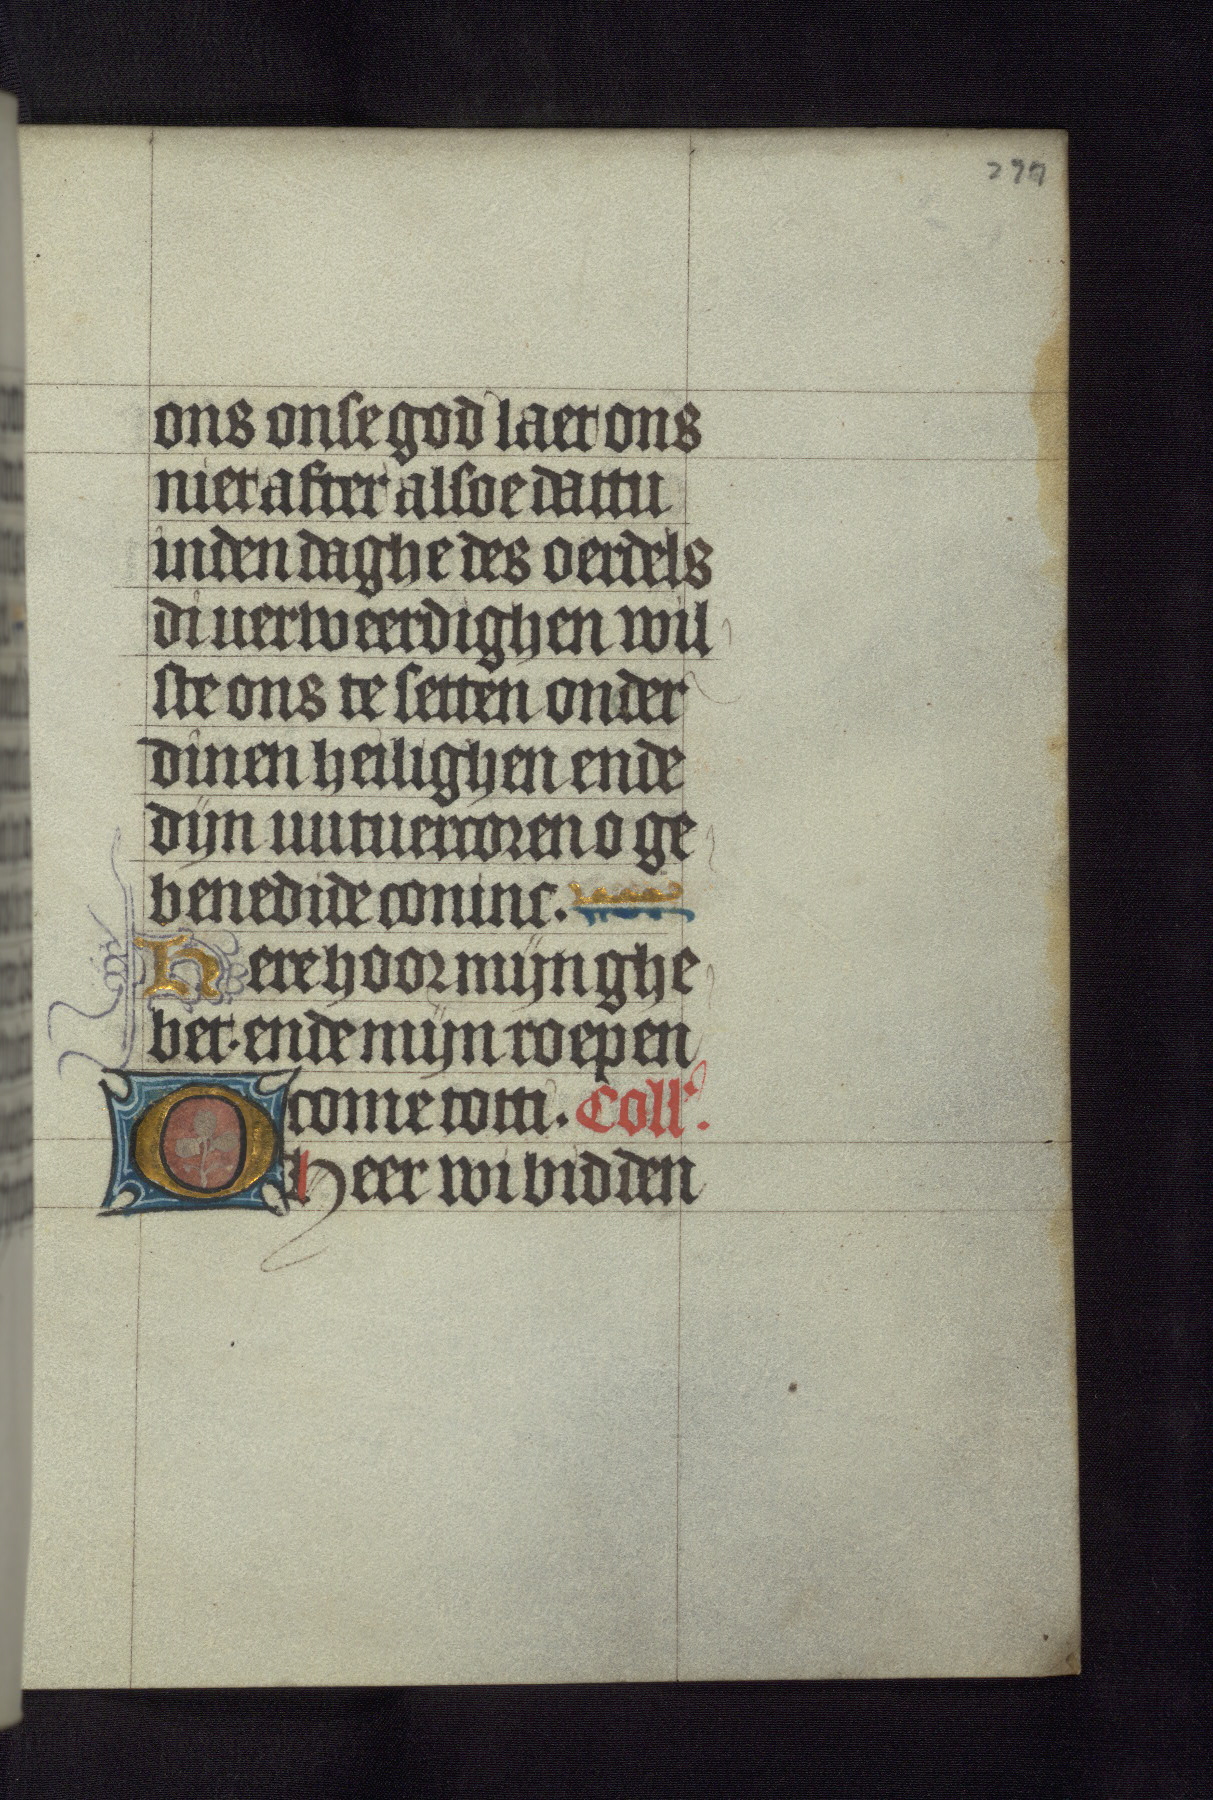 297
ons onse god laet ons
niet after alsoe dattu
inden daghe des oerdels
di uerweerdighen wil
ste ons te setten onder
dinen heilighen ende
dijn uutuercoren o ge
benedide coninc.
Here hoor mijn ghe
bet. ende mijn roepen
come totti. Coll'.
O heer wi bidden